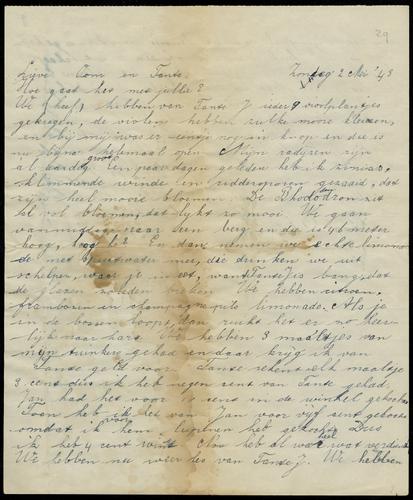 29
Lieve Oom en Tante, Zondag 2 Mei '43
Hoe gaat het met jullie?
We (heef) hebben van Tante J ieder 9 vioolplantjes
gekregen, de violen hebben zulke mooie kleuren,
en bij mij was er eentje nog in knop en die is
nu bijna helemaal open. Mijn radijzen zijn
al aardig groot. Een paar dagen geleden heb ik
klimmende winde en riddersporen gezaaid, dat
zijn heel mooie bloemen. De Rhododron zit
al vol bloemen, dat lijkt zo mooi. We gaan
vanmiddag naar een berg en die is 41 meter
hoog, hoog h? En dan nemen we echte limona
de met spuitwater mee, die drinken we uit
schelpen, waar je in eet, want Tante J is bang, dat
de glazen zouden breken. We hebben citroen,
frambozen en champagne pils limonade. Als je
in de bossen loopt, dan ruikt het er zo heer-
lijk naar hars. We hebben 3 maaltjes van
mijn tuinkers gehad en daar krijg ik van
Tante geld voor. Tante rekent elk maaltje
3 cent dus ik heb negen cent van Tante gehad.
Jan had het voor 10 cent in de winkel gekocht
Toen heb ik het van Jan voor vijf cent gekocht
omdat ik voor hem lupinen heb gekocht. Dus
ik heb 4 cent winst. Nou heb al heel wat verdiend
We hebben nu weer les van Tante J. We hebben